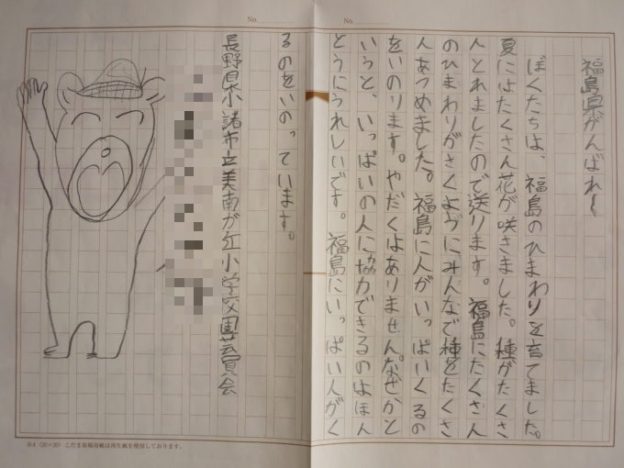 No.
No.
福島県がんばれ〜
ぼくたちは、福島のひまわりを育てました。
夏にはたくさん花が咲きました。種がたくさ
んとれましたので送ります。福島にたくさん
のひまわりがさくようにみんなで種をたくさ
んあつめました。福島に人がいっぱいくるの
をいのります。やだくはありません。なぜかと
いうと、いっぱいの人に協力できるのはほん
とうにうれしいです。福島にいっぱい人がく
るのをいのっています。
長野県小諸市立美南が丘小学校園芸委員会
B4（20×20）こだま原稿用紙は再生紙を使用しております。